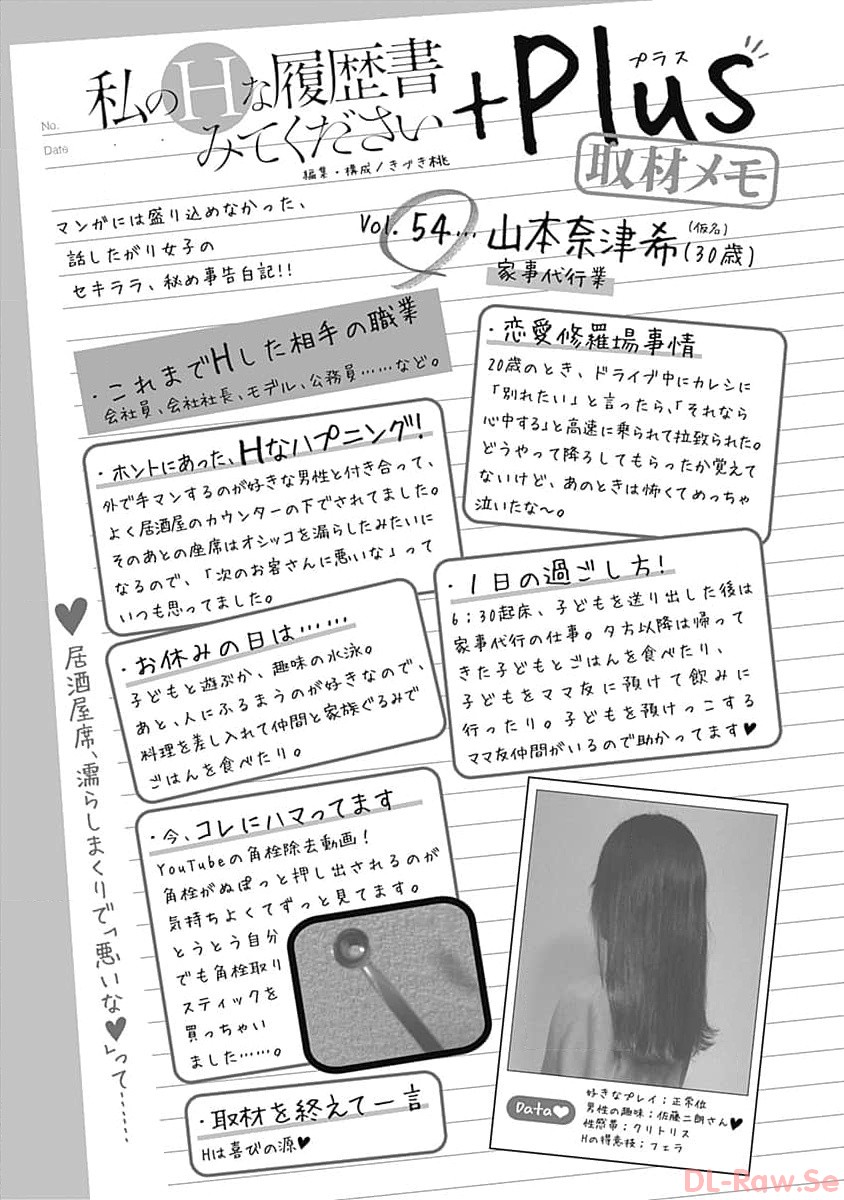 No.
Date
私のHな履歴書
みてください
+Plus
プラス
取材メモ
編集・構成/きづき桃
マンガには盛り込めなかった、
話したがり女子の
セキララ、秘め事告白記!!
Vol. 54...
山本奈津希(30歳)
(仮名)
家事代行業
・これまでHした相手の職業
会社員、会社社長、モデル、公務員……など。
・恋愛修羅場事情
20歳のとき、ドライブ中にカレシに
「別れたい」と言ったら、「それなら
心中する」と高速に乗られて拉致られた。
どうやって降ろしてもらったか覚えて
ないけど、あのときは怖くてめっちゃ
泣いたな〜。
・ホントにあった、Hなハプニング!
外で手マンするのが好きな男性と付き合って、
よく居酒屋のカウンターの下でされてました。
そのあとの座席はオシッコを漏らしたみたいに
なるので、「次のお客さんに悪いな」って
いつも思ってました。
・1日の過ごし方!
6:30起床、子どもを送り出した後は
家事代行の仕事。夕方以降は帰って
きた子どもとごはんを食べたり、
子どもをママ友に預けて飲みに
行ったり。子どもを預けっこする
ママ友仲間がいるので助かってます♥
・お休みの日は……
子どもと遊ぶか、趣味の水泳。
あと、人にふるまうのが好きなので、
料理を差し入れて仲間と家族ぐるみで
ごはんを食べたり。
♥居酒屋席、濡らしまくりで「悪いな♥」って……
・今、コレにハマってます
YouTubeの角栓除去動画!
角栓がぬぽっと押し出されるのが
気持ちよくてずっと見てます。
とうとう自分
でも角栓取り
スティックを
買っちゃい
ました……。
・取材を終えて一言
Hは喜びの源♥
Data♥
好きなプレイ;正常位
男性の趣味;佐藤二朗さん♥
性感帯;クリトリス
Hの得意技;フェラ
DL-Raw.Se